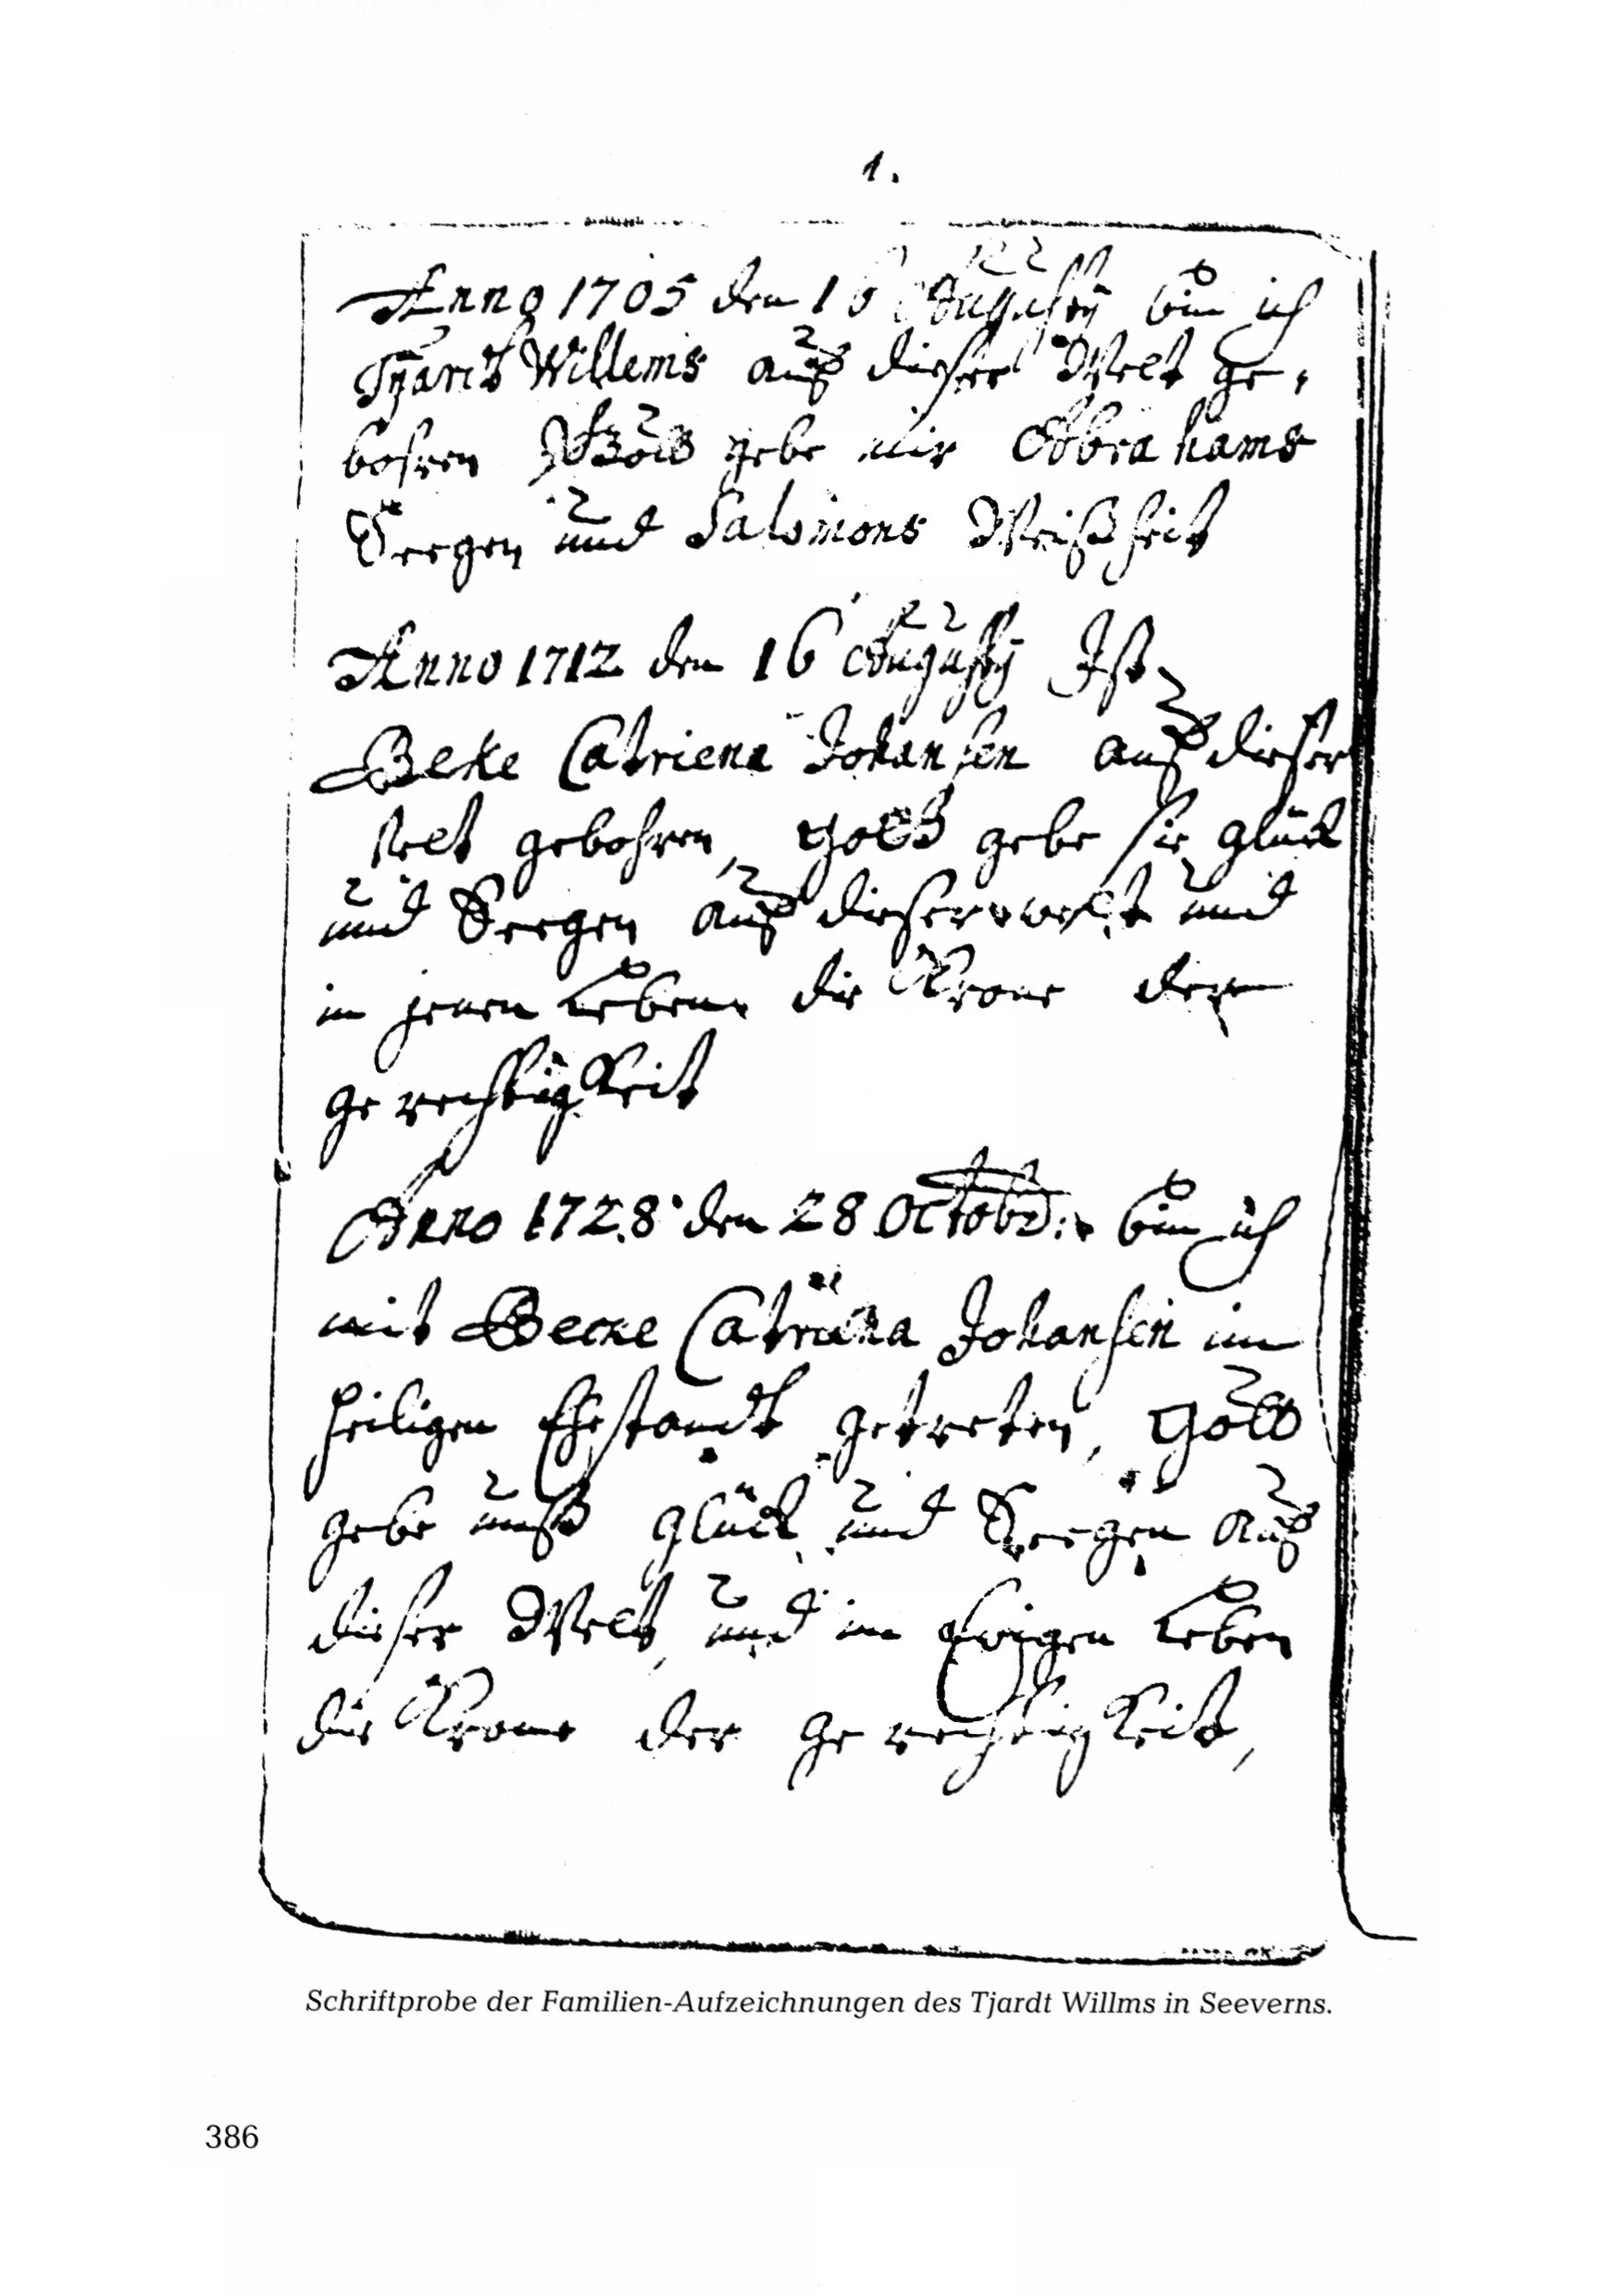 1.
Anno 1705 den 16 Augusty bin ich
Tjardt Willems auf dieser Welt ge,
bohren Gott gebe mir Abrahams
Seegen und Salomons Weißheit
Anno 1712 den 16 Augusty Ist
Beke Catriena Johansen auf dieser
welt gebohren, Gott gebe sie glück
und Seegen auf dieser welt und
in jenen Leben die Krone der
gerechtigkeit
Anno 1728 den 28 Octobr: bin ich
mit Becke Catriena Johansen im
heiligen Ehestandt getreten, Gott
gebe unß glück und Seegen auf
dieser Welt, und im Ewigen Leben
die Krone der gerechtigkeit,
Schriftprobe der Familien-Aufzeichnungen des Tjardt Willms in Seeverns.
386